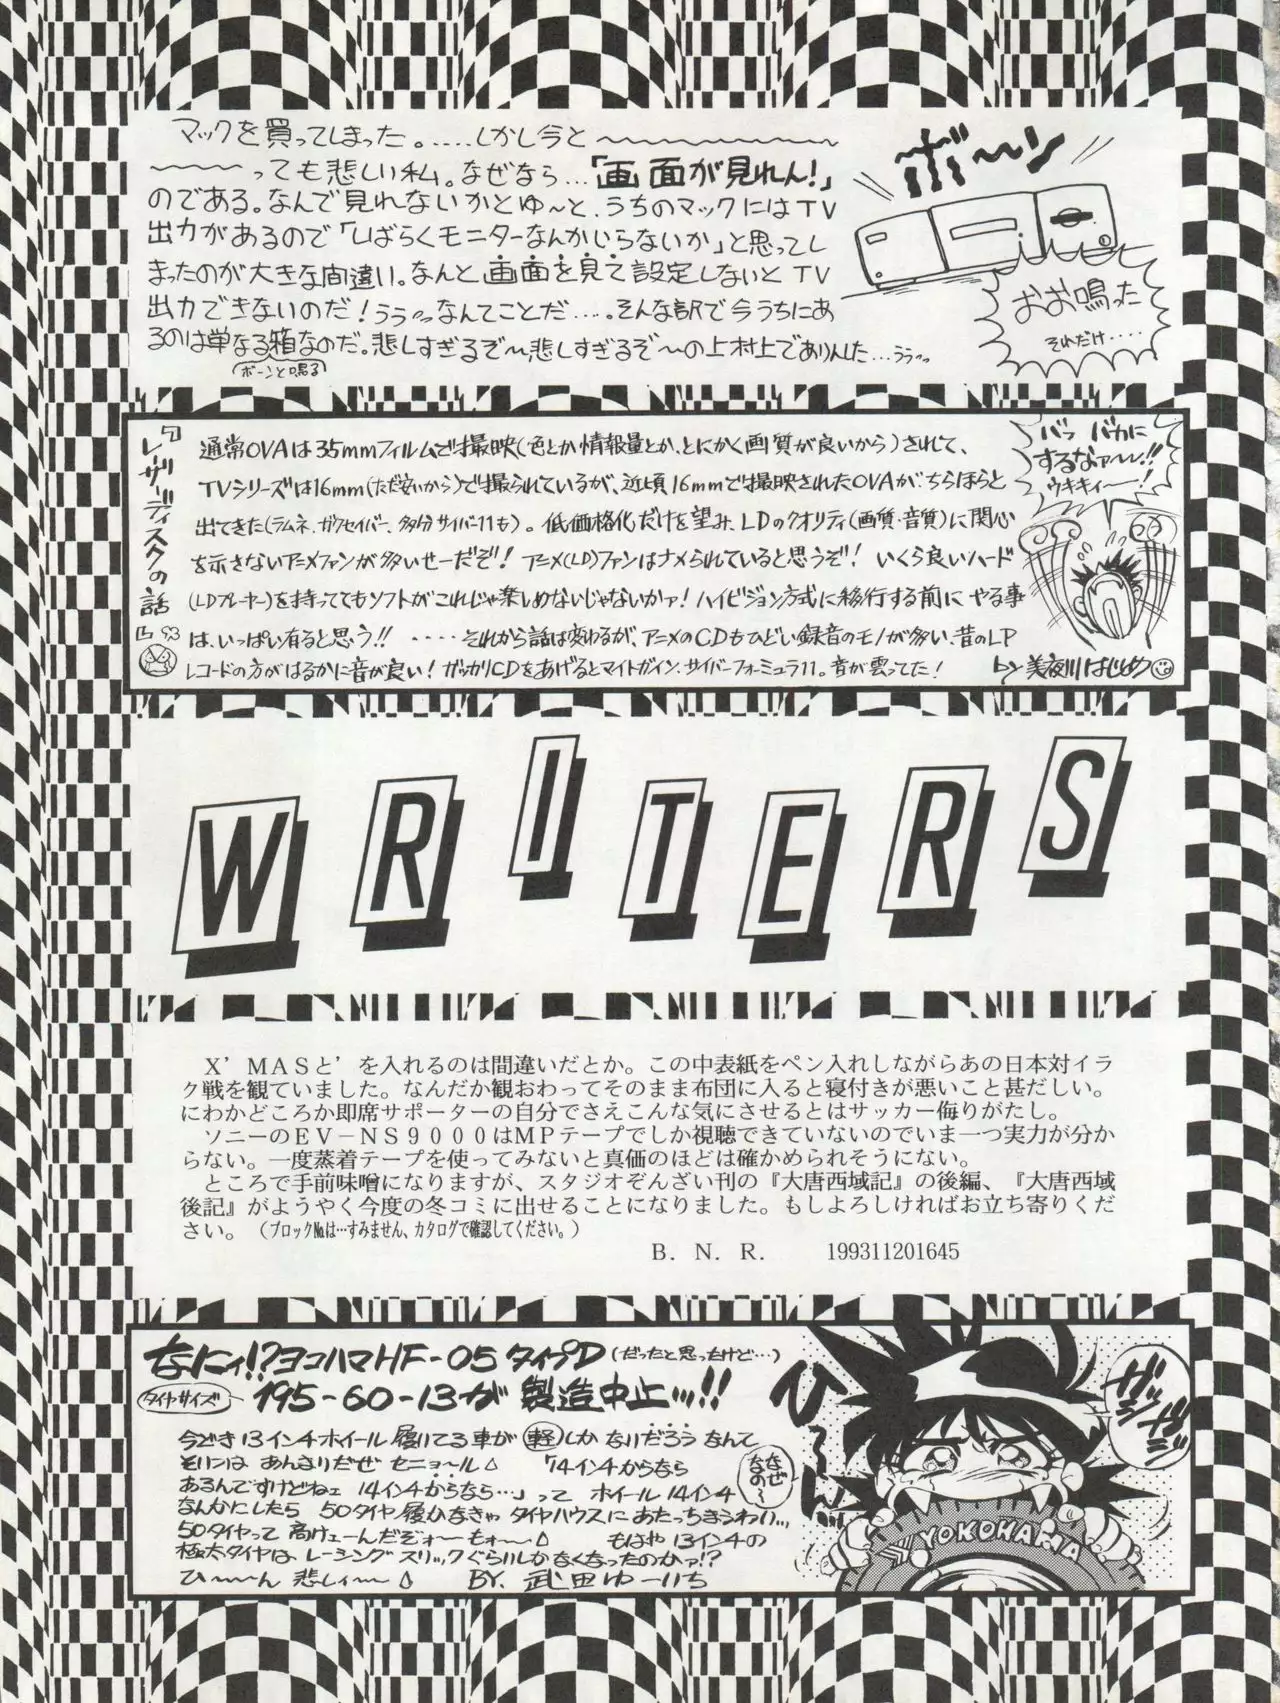 マックを買ってしまった。.....しかし今と〜〜〜〜〜〜〜〜
〜〜〜〜っても悲しい私。なぜなら...「画面が見れん!」
のである。なんで見れないかとゆ〜と、うちのマックにはTV
出力があるので「しばらくモニターなんかいらないか」と思ってし
まったのが大きな間違い。なんと画面を見て設定しないとTV
出力できないのだ!ううっっなんてことだ....。そんな訳で今うちにあ
るのは単なる箱なのだ。悲しすぎるぞ〜悲しすぎるぞ〜の上村上でありんた...ううっっ
(ボーンと鳴る)
ボ〜ン
おお鳴った
それだけ....
『レーザーディスクの話』
93
通常OVAは35mmフィルムで撮映(色とか情報量とか、とにかく画質が良いから)されて、
TVシリーズは16mm(ただ安いから)で撮られているが、近頃16mmで撮映されたOVAがちらほらと
出てきた(ラムネ、ガクセイバー、多分サイバー11も)。低価格化だけを望み、LDのクオリティ(画質・音質)に関心
を示さないアニメファンが多いせーだぞ!アニメ(LD)ファンはナメられていると思うぞ!いくら良いハード
(LDプレーヤー)を持っててもソフトがこれじゃ楽しめないじゃないかァ!ハイビジョン方式に移行する前にやる事
は、いっぱい有ると思う!!....それから話は変わるが、アニメのCDもひどい録音のモノが多い、昔のLP
レコードの方がはるかに音が良い!ガッカリCDをあげるとマイトガイン、サイバーフォーミュラ11。音が曇ってた!
バっバカに
するなァ〜〜!!
ウキキィー〜!
美夜川はじめ
WRITERS
X'MASと'を入れるのは間違いだとか。この中表紙をペン入れしながらあの日本対イラ
ク戦を観ていました。なんだか観おわってそのまま布団に入ると寝付きが悪いこと甚だしい。
にわかどころか即席サポーターの自分でさえこんな気にさせるとはサッカー侮りがたし。
ソニーのEV-NS9000はMPテープでしか視聴できていないのでいま一つ実力が分か
らない。一度蒸着テープを使ってみないと真価のほどは確かめられそうにない。
ところで手前味噌になりますが、スタジオぞんざい刊の『大唐西域記』の後編、『大唐西域
後記』がようやく今度の冬コミに出せることになりました。もしよろしければお立ち寄りくだ
さい。(ブロック№は…すみません、カタログで確認してください。)
B. N. R. 199311201645
なにィ!?ヨコハマHF-05タイプD(だったと思ったけど...)
タイヤサイズ 195-60-13が製造中止ッ!!
今どき13インチホイール履いてる車が軽しかないだろうなんて
そりンはあんまりだぜセニョ〜ル 「14インチからなら
あるんですけどねェ14インチからなら...」ってホイール14インチ
なんかにしたら50タイヤ履かなきゃタイヤハウスにあたっちまうわい...
50タイヤって高けェーんだぞォ〜もォ〜 もはや13インチの
極太タイヤはレーシングスリックぐらいしかなくなったのかァ!?
ひ〜〜ん悲しィ〜 BY.武田ゆーいち
なぜなの〜
ひ〜〜ん
ガジガジ
YOKOHAMA